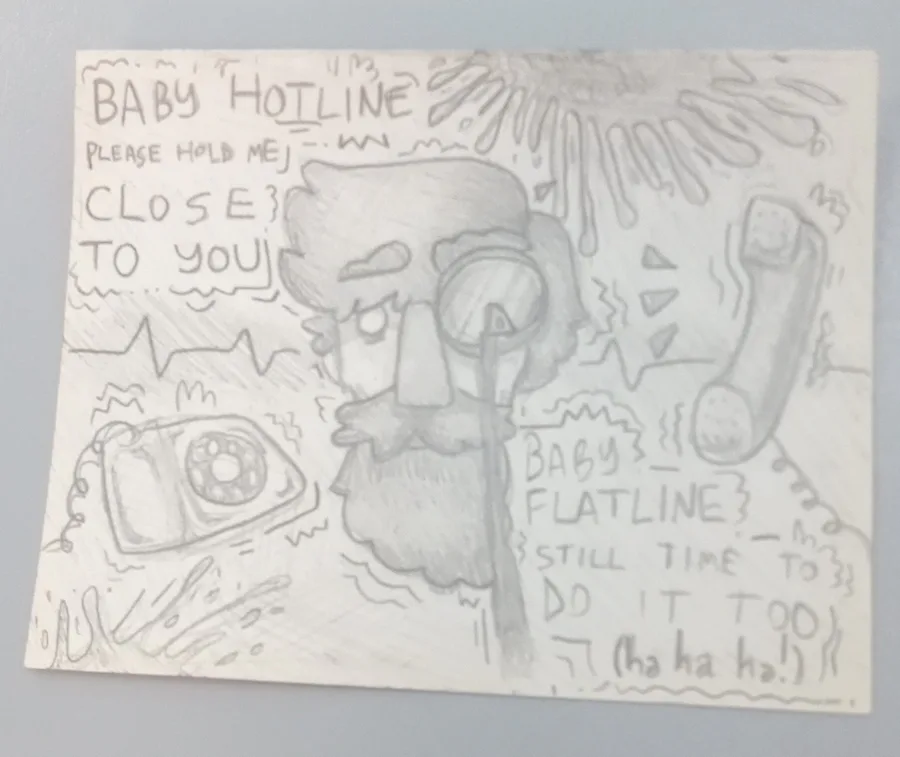 BABY HOTLINE
PLEASE HOLD ME
CLOSE
TO YOU
BABY
FLATLINE
STILL TIME TO
DO IT TOO
(ha ha ha!)